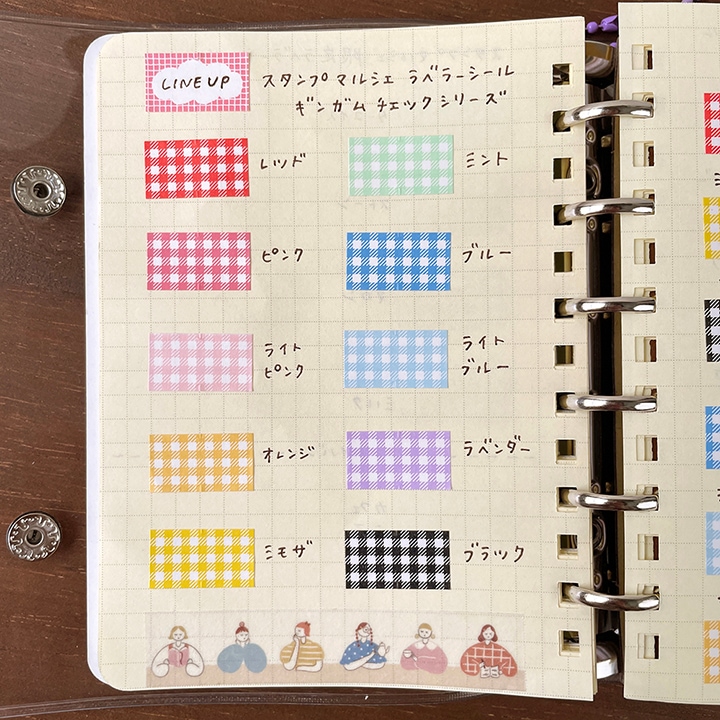 LINE UP
スタンプマルシェ ラベラーシール
ギンガムチェックシリーズ
レッド
ミント
ピンク
ブルー
ライト
ピンク
ライト
ブルー
オレンジ
ラベンダー
ミモザ
ブラック